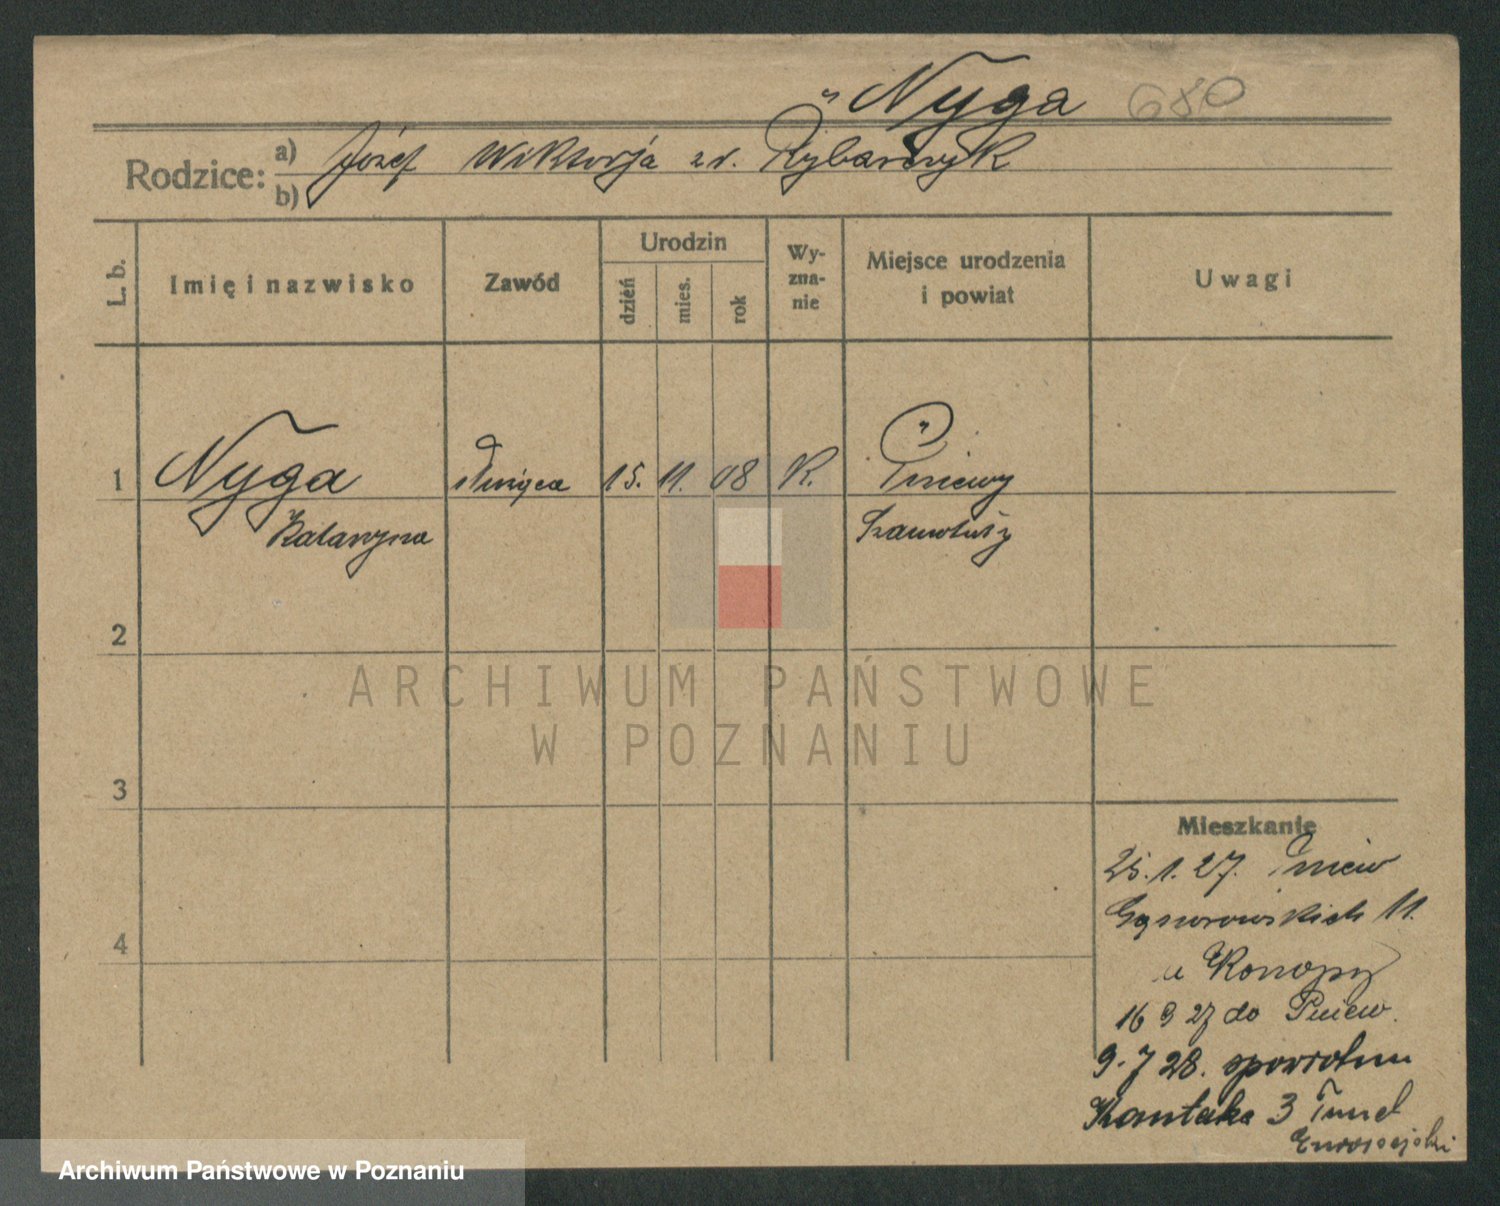 Nyga 680
Rodzice: a) Józef Wiktorja zd. Rybarczyk
b)
L. b. Imię i nazwisko Zawód Urodzin dzień mies. rok Wyzna-nie Miejsce urodzenia i powiat Uwagi
1 Nyga służąca 15. 11. 08 K. Pniewy
Katarzyna Szamotuły
2
3
4
Mieszkanie
25.1.27. Pniew
11.
u Konopy
16 9 27 do Pniew.
9.7 28. spowrotem
Kantaka 3
ARCHIWUM PAŃSTWOWE
W POZNANIU
Archiwum Państwowe w Poznaniu